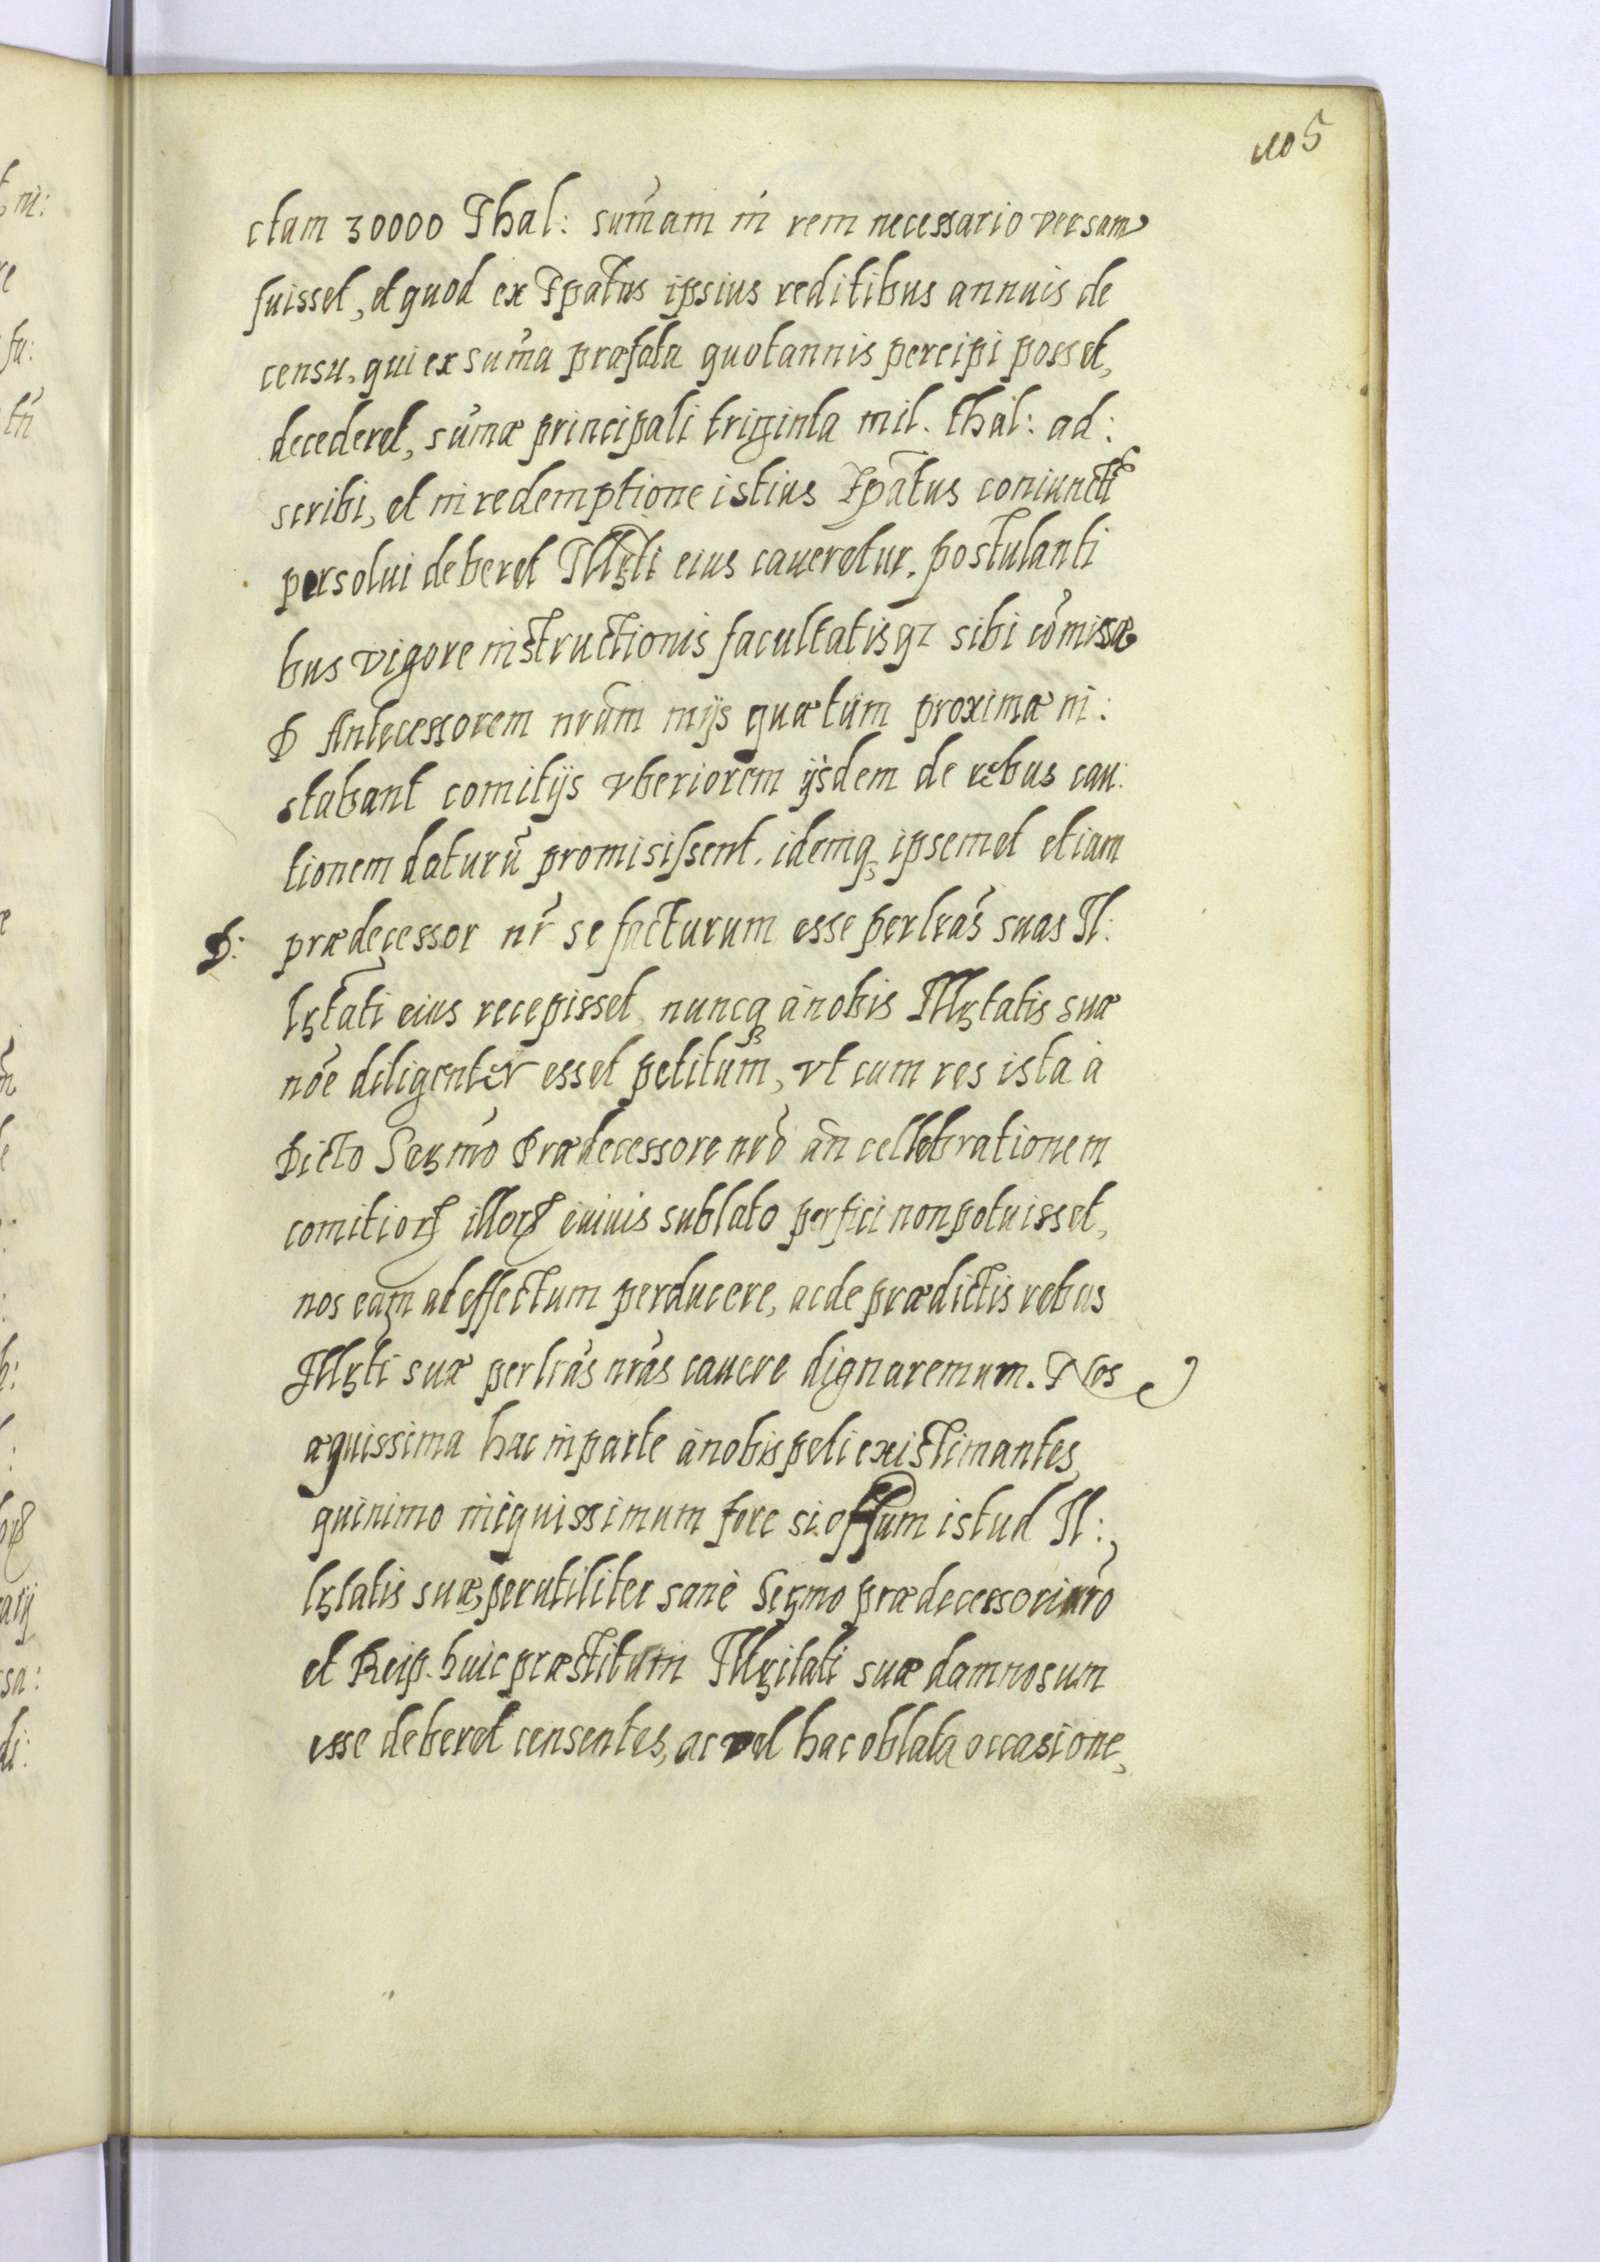 105
ctam 30000 Thal: sum̃am in rem necessario versam
fuisset, et quod ex Ep̃atus ipsius reditibus annuis de
censu, qui ex sum̃a præfata quotannis percipi posset,
decederet, sum̃æ principali triginta mil. thal: ad:
scribi, et in redemptione istius Ep̃atus coniunctĩ
persolui deberet Illr̃ti eius caueretur. postulanti
bus vigore instructionis facultatisqz sibi cõmissæ
D Antecessorem nrũm in ijs quæ tum proximæ in:
stabant comitijs vberiorem ijsdem de rebus cau:
tionem daturũ promisissent. idemq̃ ipsemet etiam
D: prædecessor nr̃ se facturum esse per lrãs suas Il:
lr̃tati eius recepisset, nuncq̃ à nobis Illr̃tatis suæ
nõe diligenter esset petitum, vt cum res ista à
Dicto Ser̃mo Prædecessore nrõ añ cellebrationem
comitiorꝝ illorꝝ è viuis sublato perfici non potuisset,
nos eam ad effectum perducere, ac de prædictis rebus
Illr̃ti suæ per lrãs nrãs cauere dignaremum. Nos
æquissima hac in parte à nobis peti existimantes,
quinimo iniquissimum fore si offũm istud Il:
lr̃tatis suæ, perutiliter sanè Ser̃mo prædecessori nrõ
et Reip. huic præstitum Illr̃itati suæ damnosum
esse deberet censentes, ac vel hac oblata occasione,